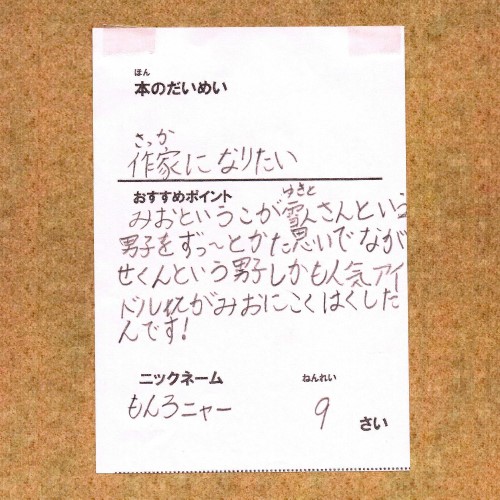 ほん
本のだいめい
さっか
作家になりたい
おすすめポイント
ゆきと
みおというこが雪人さんという
男子をずっ〜とかた思いでなが
せくんという男子しかも人気アイ
ドル がみおにこくはくした
んです!
ニックネーム
ねんれい
もんろニャー
9 さい